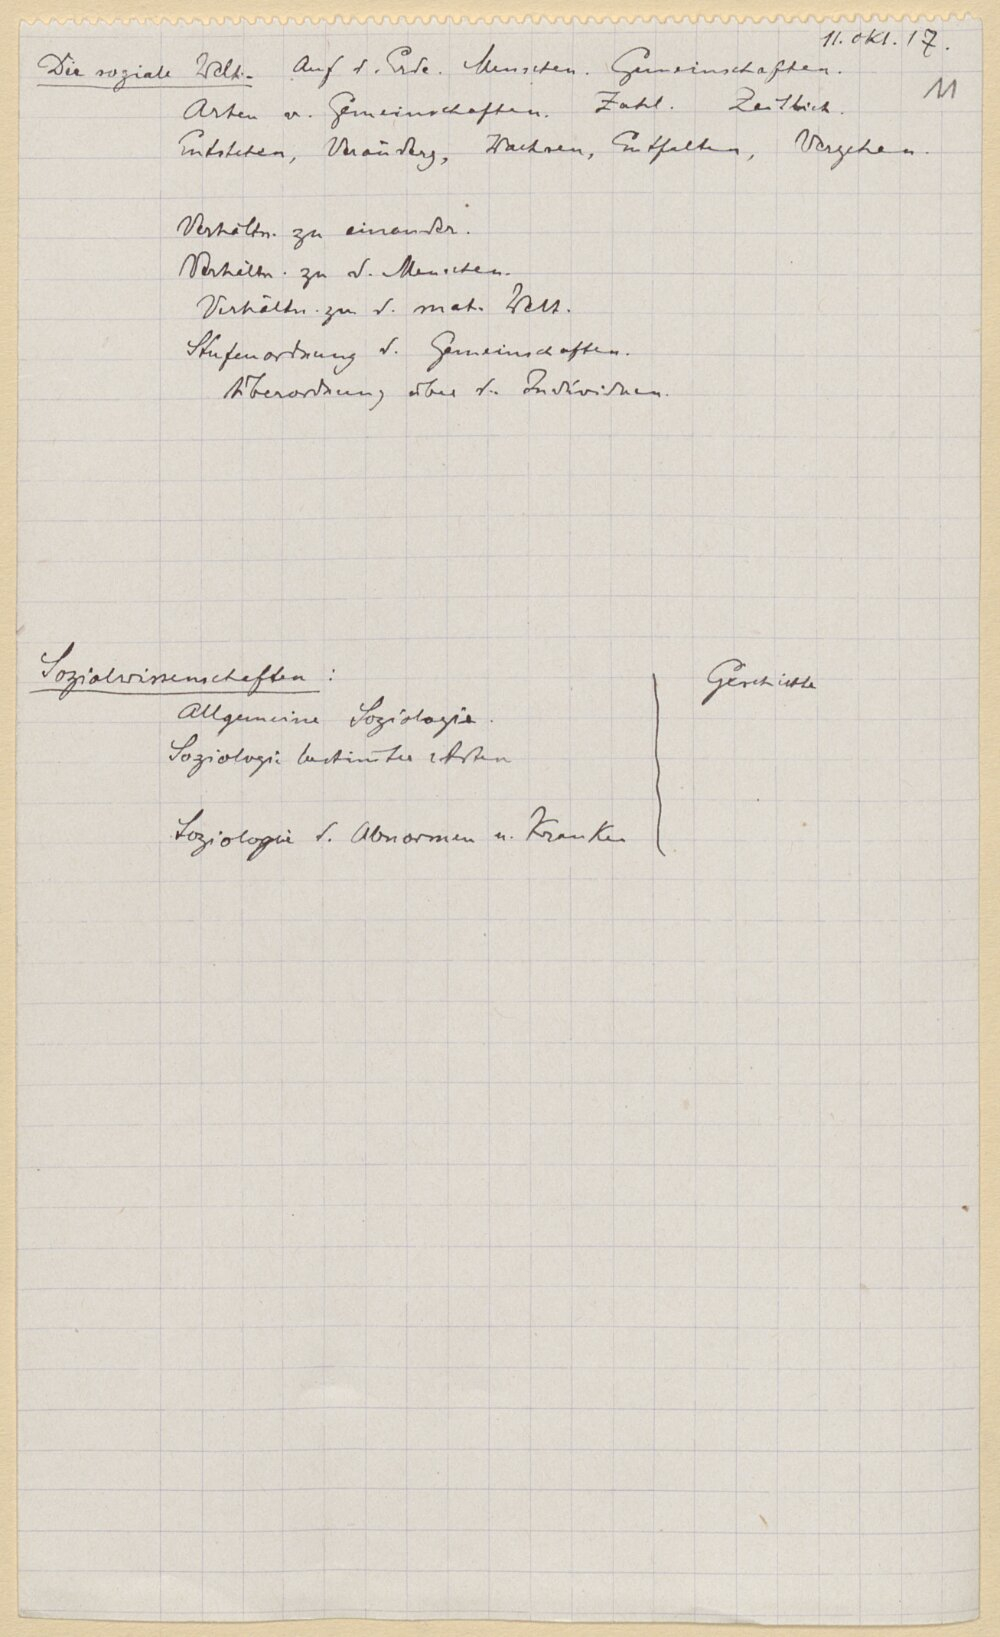 11. Okt. 17.
11
Die soziale Welt. Auf d. Erde. Menschen. Gemeinschaften.
Arten v. Gemeinschaften. Zahl. Zeitlich.
Entstehen, Veränderg, Wachsen, Entfalten, Vergehen.
Verhältn. zu einander.
Verhältn. zu d. Menschen.
Verhältn. zu d. mat. Welt.
Stufenordnung d. Gemeinschaften.
Überordnung über d. Individuen.
Sozialwissenschaften :
Geschichte
Allgemeine Soziologie.
Soziologie bestim̄ter Arten
Soziologie d. Abnormen u. Kranken